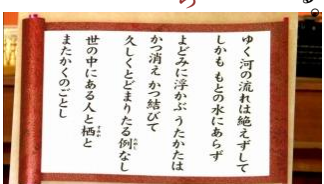 ゆく河の流れは絶えずして
しかも もとの水にあらず
よどみに浮かぶ うたかたは
かつ消え かつ結びて
久しくとどまりたる例なし
世の中にある人と栖と
またかくのごとし